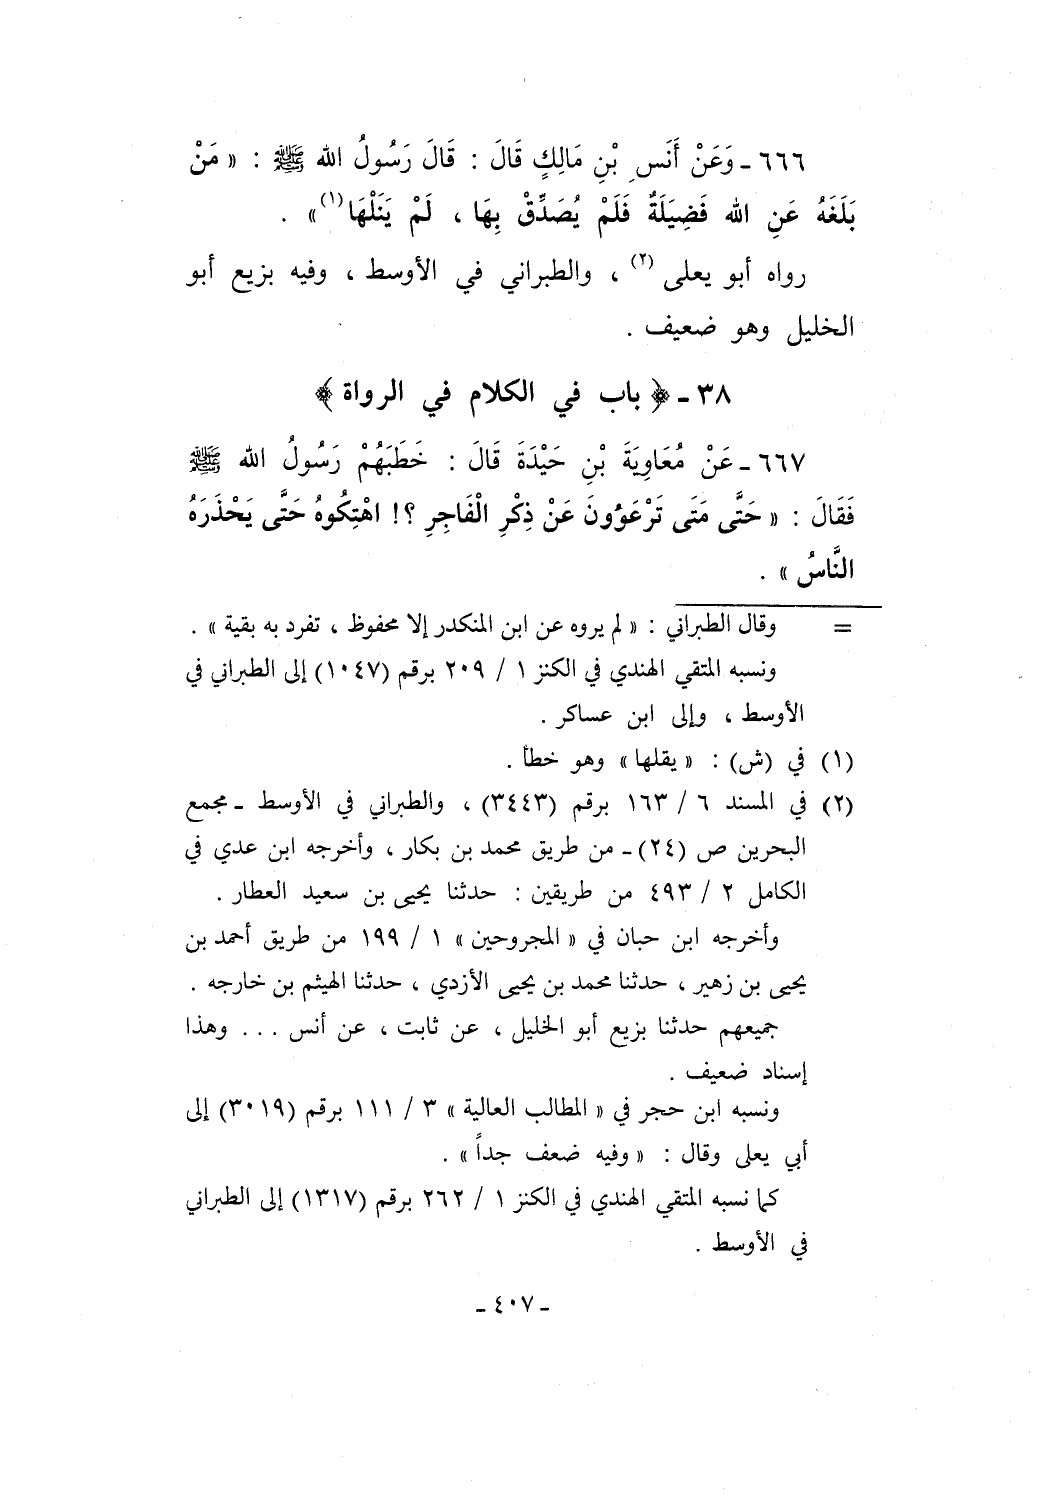 ٦٦٦ - وَعَنْ أَنَسِ بْنِ مَالِكٍ قَالَ : قَالَ رَسُولُ الله ﷺ : « مَنْ
بَلَغَهُ عَنِ الله فَضِيلَةٌ فَلَمْ يُصَدِّقْ بِهَا ، لَمْ يَنَلْهَا (١) » .
رواه أبو يعلى (٢) ، والطبراني في الأوسط ، وفيه بزيع أبو
الخليل وهو ضعيف .
٣٨ - ﴿ باب في الكلام في الرواة ﴾
٦٦٧ - عَنْ مُعَاوِيَةَ بْنِ حَيْدَةَ قَالَ : خَطَبَهُمْ رَسُولُ الله ﷺ
فَقَالَ : « حَتَّى مَتَى تَرْعَوُونَ عَنْ ذِكْرِ الْفَاجِرِ ؟! اهْتِكُوهُ حَتَّى يَحْذَرَهُ
النَّاسُ » .
= وقال الطبراني : « لم يروه عن ابن المنكدر إلا محفوظ ، تفرد به بقية » .
ونسبه المتقي الهندي في الكنز ١ / ٢٠٩ برقم (١٠٤٧) إلى الطبراني في
الأوسط ، وإلى ابن عساكر .
(١) في (ش) : « يقلها » وهو خطأ .
(٢) في المسند ٦ / ١٦٣ برقم (٣٤٤٣) ، والطبراني في الأوسط - مجمع
البحرين ص (٢٤) - من طريق محمد بن بكار ، وأخرجه ابن عدي في
الكامل ٢ / ٤٩٣ من طريقين : حدثنا يحيى بن سعيد العطار .
وأخرجه ابن حبان في « المجروحين » ١ / ١٩٩ من طريق أحمد بن
يحيى بن زهير ، حدثنا محمد بن يحيى الأزدي ، حدثنا الهيثم بن خارجه .
جميعهم حدثنا بزيع أبو الخليل ، عن ثابت ، عن أنس ... وهذا
إسناد ضعيف .
ونسبه ابن حجر في « المطالب العالية » ٣ / ١١١ برقم (٣٠١٩) إلى
أبي يعلى وقال : « وفيه ضعف جداً » .
كما نسبه المتقي الهندي في الكنز ١ / ٢٦٢ برقم (١٣١٧) إلى الطبراني
في الأوسط .
- ٤٠٧ -